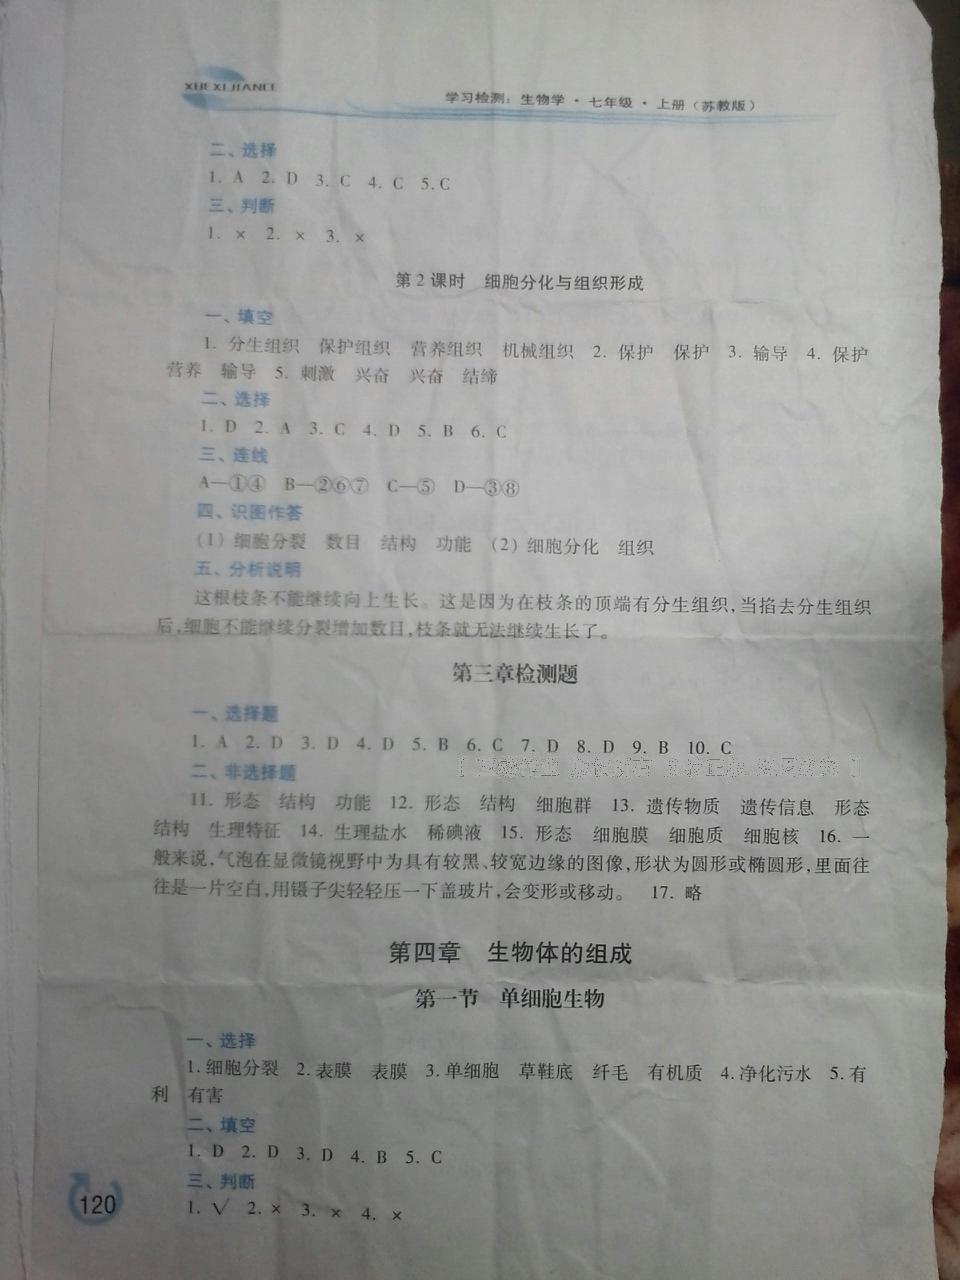 XUEXIJIANCE
学习检测：生物学·七年级·上册（苏教版）
二、选择
1. A 2. D 3. C 4. C 5. C
三、判断
1. × 2. × 3. ×
第2课时 细胞分化与组织形成
一、填空
1. 分生组织 保护组织 营养组织 机械组织 2. 保护 保护 3. 输导 4. 保护
营养 输导 5. 刺激 兴奋 兴奋 结缔
二、选择
1. D 2. A 3. C 4. D 5. B 6. C
三、连线
A—①④ B—②⑥⑦ C—⑤ D—③⑧
四、识图作答
（1）细胞分裂 数目 结构 功能 （2）细胞分化 组织
五、分析说明
这根枝条不能继续向上生长。这是因为在枝条的顶端有分生组织，当掐去分生组织
后，细胞不能继续分裂增加数目，枝条就无法继续生长了。
第三章检测题
一、选择题
1. A 2. D 3. D 4. D 5. B 6. C 7. D 8. D 9. B 10. C
二、非选择题
11. 形态 结构 功能 12. 形态 结构 细胞群 13. 遗传物质 遗传信息 形态
结构 生理特征 14. 生理盐水 稀碘液 15. 形态 细胞膜 细胞质 细胞核 16. 一
般来说，气泡在显微镜视野中为具有较黑、较宽边缘的图像，形状为圆形或椭圆形，里面往
往是一片空白，用镊子尖轻轻压一下盖玻片，会变形或移动。 17. 略
第四章 生物体的组成
第一节 单细胞生物
一、选择
1. 细胞分裂 2. 表膜 表膜 3. 单细胞 草鞋底 纤毛 有机质 4. 净化污水 5. 有
利 有害
二、填空
1. D 2. D 3. D 4. B 5. C
三、判断
1. √ 2. × 3. × 4. ×
120